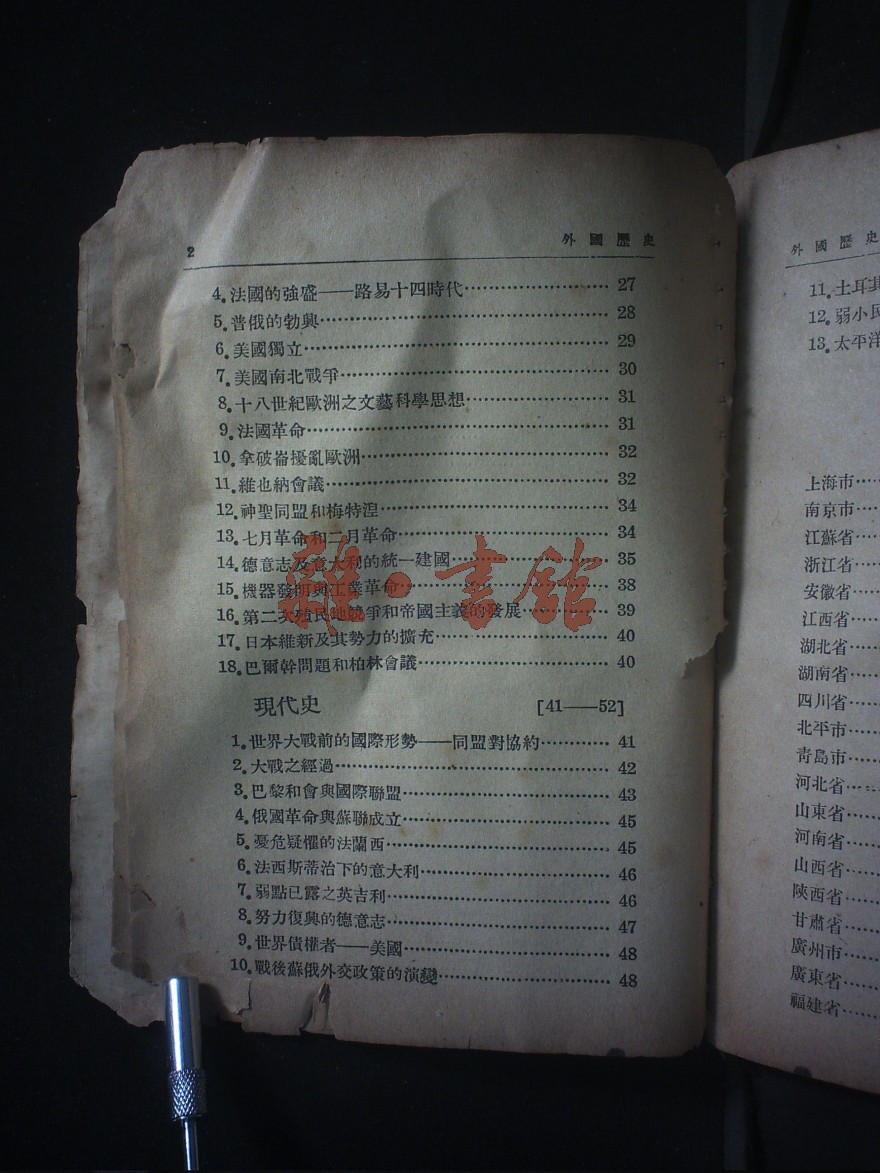 2 外國歷史
4.法國的強盛——路易十四時代…………………… 27
5.普俄的勃興…………………… 28
6.美國獨立…………………… 29
7.美國南北戰爭…………………… 30
8.十八世紀歐洲之文藝科學思想…………………… 31
9.法國革命…………………… 31
10.拿破崙擾亂歐洲…………………… 32
11.維也納會議…………………… 32
12.神聖同盟和梅特涅…………………… 34
13.七月革命和二月革命…………………… 34
14.德意志及意大利的統一建國…………………… 35
15.機器發明與工業革命…………………… 38
16.第二次殖民地競爭和帝國主義的發展…………………… 39
17.日本維新及其勢力的擴充…………………… 40
18.巴爾幹問題和柏林會議…………………… 40
現代史 [41——52]
1.世界大戰前的國際形勢——同盟對協約…………………… 41
2.大戰之經過…………………… 42
3.巴黎和會與國際聯盟…………………… 43
4.俄國革命與蘇聯成立…………………… 45
5.憂危疑懼的法蘭西…………………… 45
6.法西斯蒂治下的意大利…………………… 46
7.弱點已露之英吉利…………………… 46
8.努力復興的德意志…………………… 47
9.世界債權者——美國…………………… 48
10.戰後蘇俄外交政策的演變…………………… 48
雜·書館
外國歷史
11.土耳其
12.弱小民
13.太平洋
上海市……
南京市……
江蘇省……
浙江省……
安徽省……
江西省……
湖北省……
湖南省……
四川省……
北平市……
青島市……
河北省……
山東省……
河南省……
山西省……
陝西省……
甘肅省……
廣州市……
廣東省……
福建省……